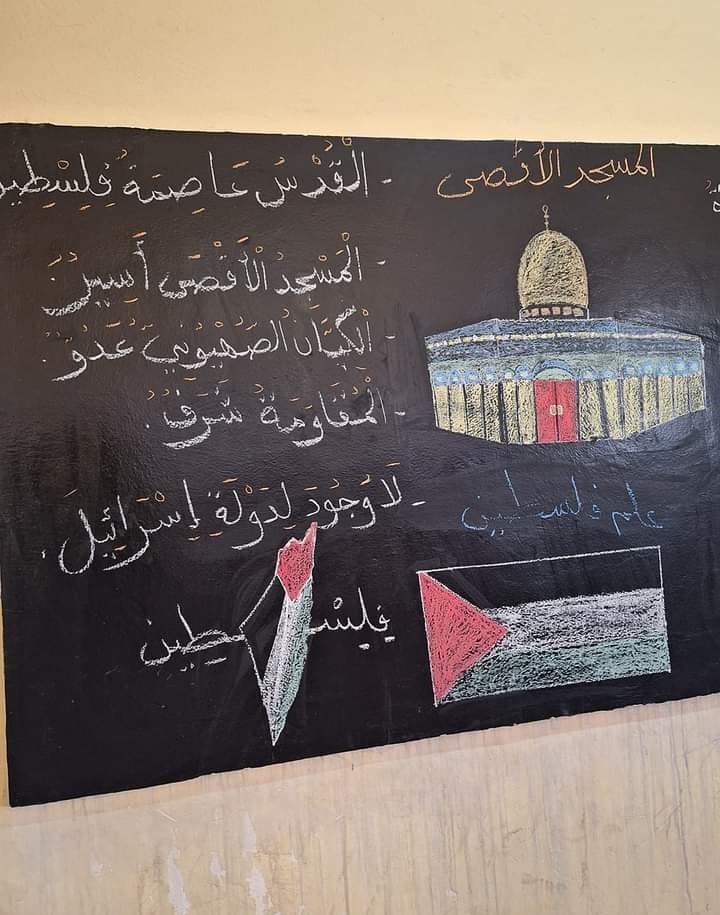 المسجد الأقصى
- الْقُدْسُ عَاصِمَةُ فِلِسْطِين
- الْمَسْجِدُ الْأَقْصَى أَسِيرٌ.
- الْكِيَانُ الصَّهْيُونِيُّ عَدُوٌّ.
- الْمُقَاوَمَةُ شَرَفٌ.
- لَا وُجُودَ لِدَوْلَةِ إِسْرَائِيلَ.
علم فلسطين
فِلِسْطِين